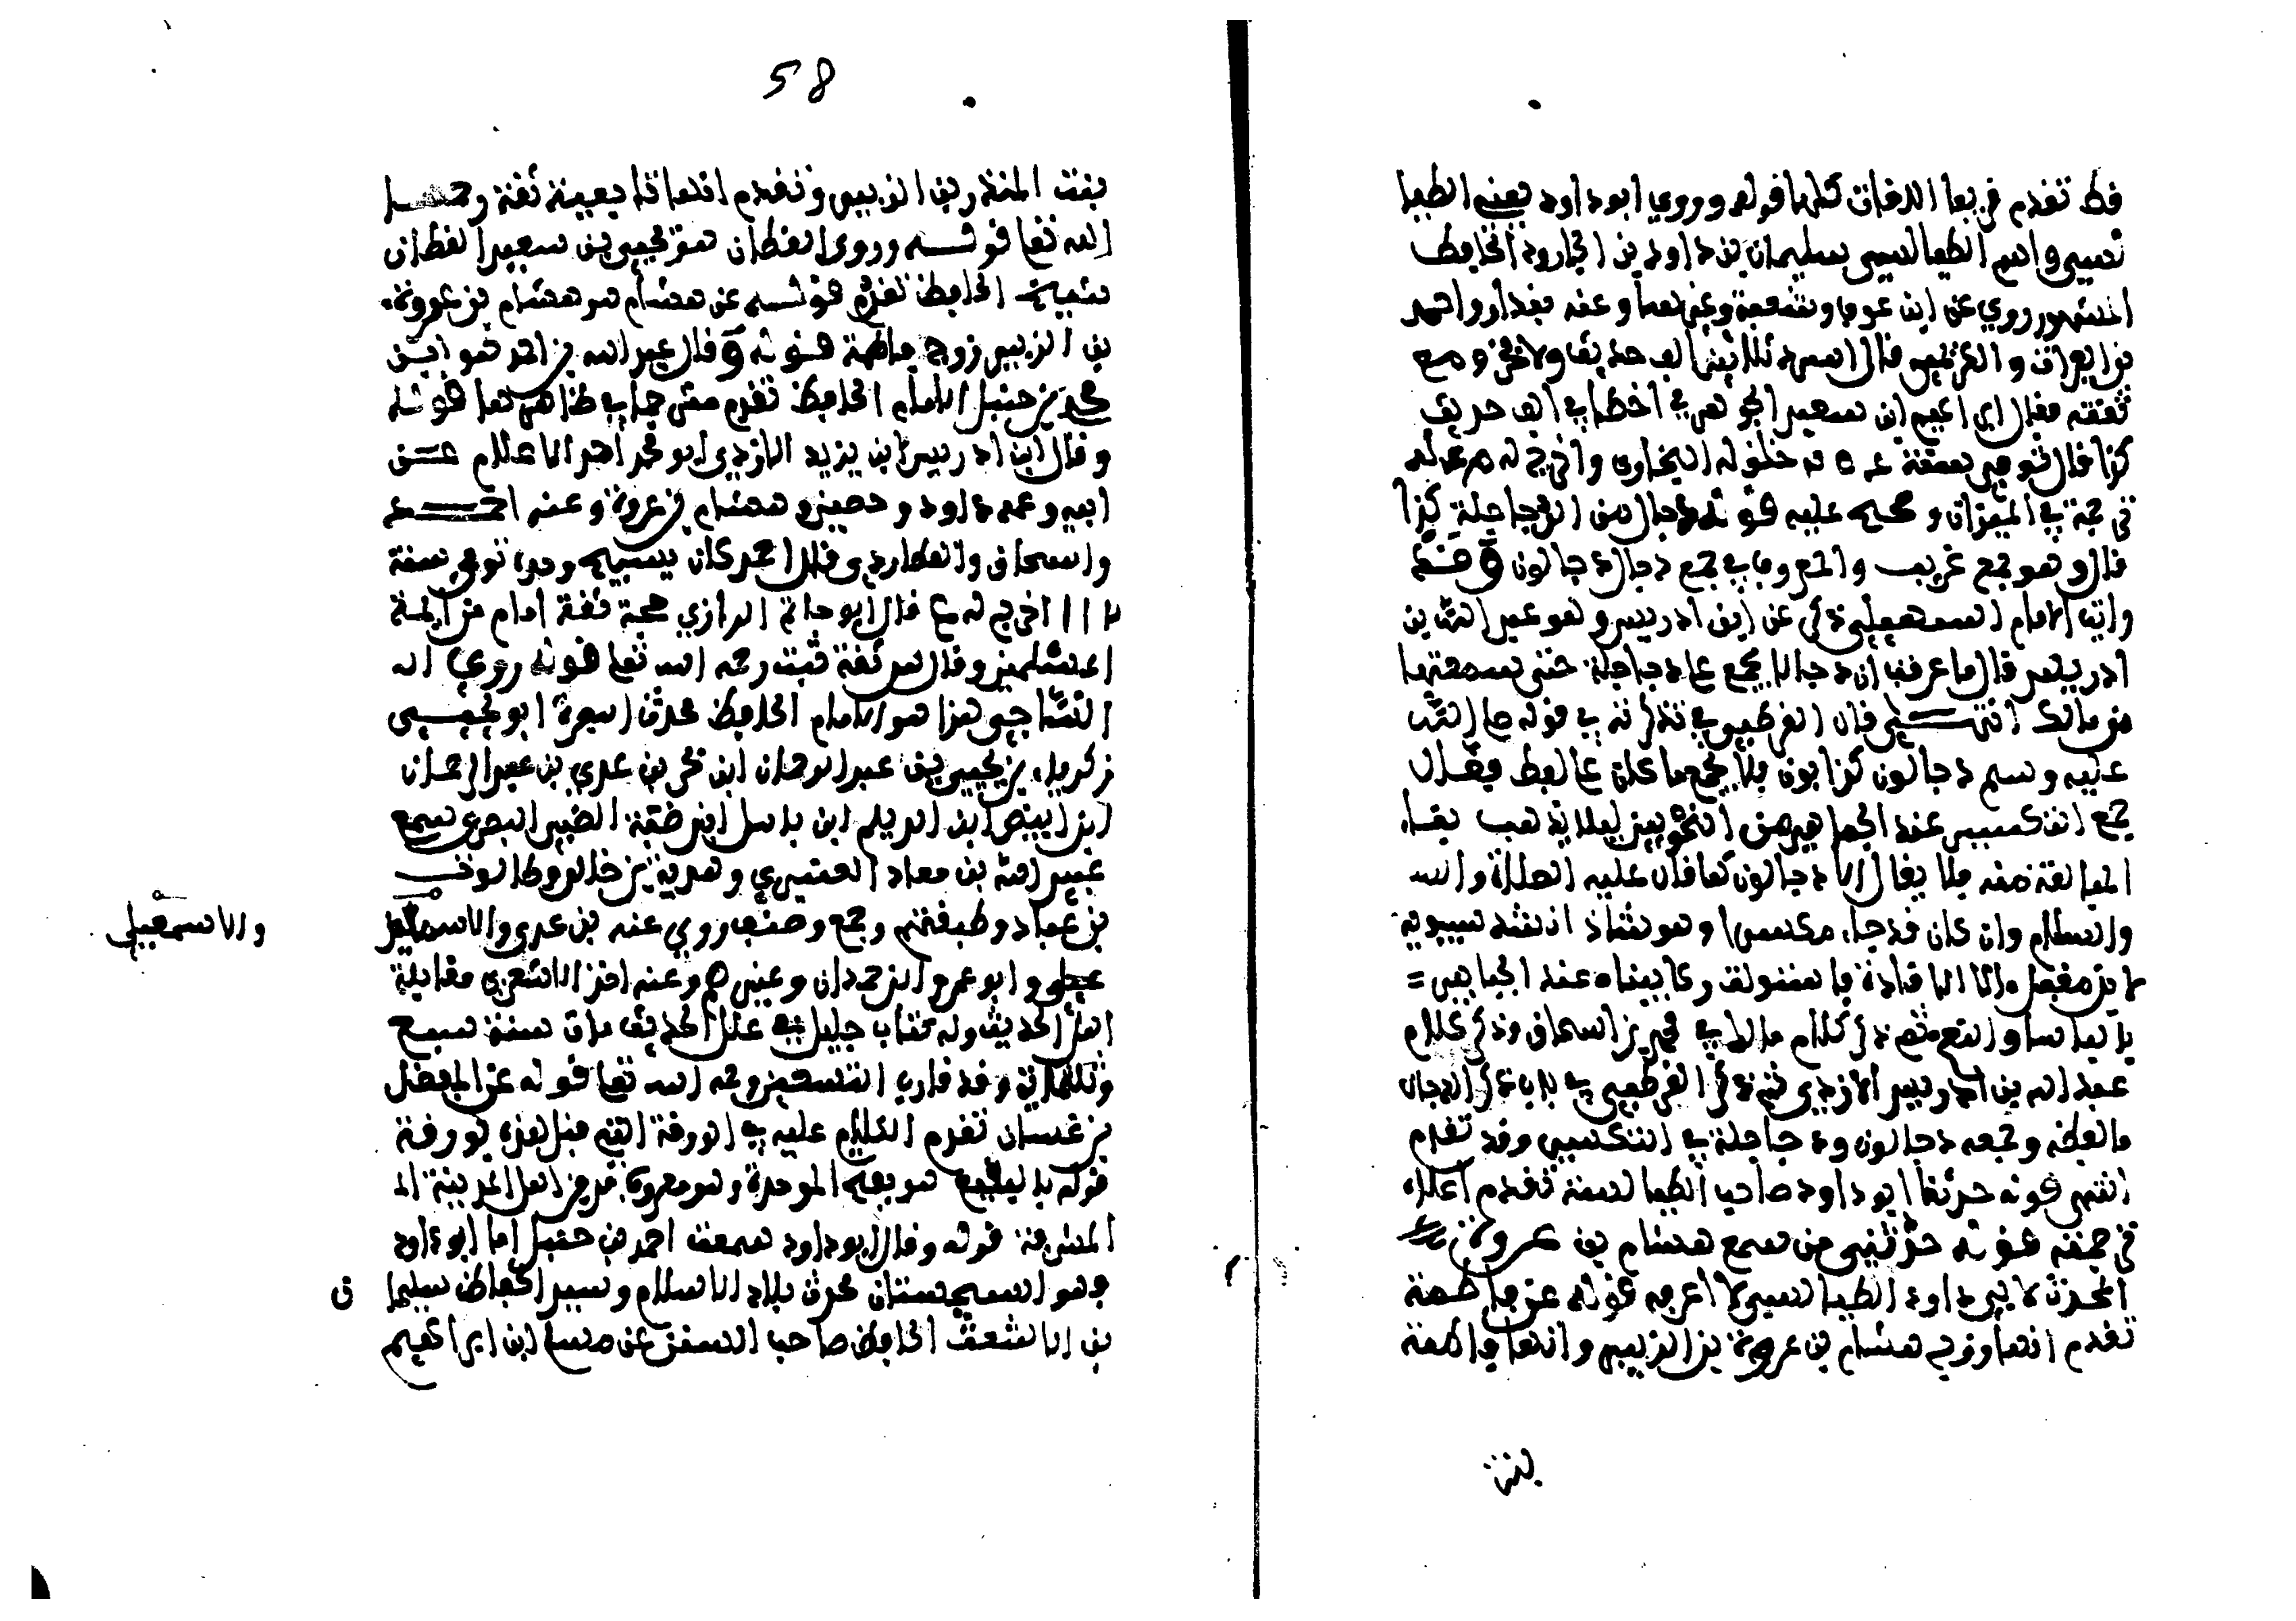 قط تقدم قريبا الدفات كلها قوله وروي ابو داود يعني الطيا
لسي واسم الطيالسي سليمان بن داود بن الجارود الحافظ
المشهور روي عن ابن عون وشعبة وغيرهما وعنه بندار واحمد
بن الفرات والكديمي قال اسرد ثلاثين الف حديث ولا فخر ومع
ثقته فقال ابراهيم ابن سعيد الجوهري اخطا في الف حديث
كذا قال توفي سنة خلف له البخاري واخرج له م عـ له
ترجمة في الميزان وصحح عليه قوله دجال من الدجاجلة كذا
قال وهو جمع غريب والمعروف في جمع دجال دجالون وقد
رايت الامام السهيلي ذكر عن ابن ادريس وهو عبد الله بن
ادريس قال ما عرفت ان دجالا يجمع على دجاجلة حتى سمعتها
من مالك انتهى قال القرطبي في تذكرته في قوله صلى الله
عليه وسلم دجالون كذابون فلا يجمع ما كان على فعال
جمع التكسير عند الجماهير من النحويين ليلا يذهب بناء
المبالغة منه فلا يقال الا دجالون كما قال عليه الصلاة والسـ
والسلام وان كان قد جاء مكسرا وهو شاذ انشد سيبويه
لابن مقبل الا الافادة فاستولت ركايبنا عند الجبابير =
بالباسا والنعم ثم ذكر كلام مالك في محمد بن اسحاق وذكر كلام
عبد الله بن ادريس الازدي ثم ذكر القرطبي في باب ذكر الدجال
ما لفظه وجمعه دجالون ودجاجلة في التكسير وقد تقدم
انتهى قوله حدثنا ابو داود صاحب الطيالسة تقدم اعلاه
ترجمته قوله حدثني من سمع هشام بن عروة
المحدث لابي داود الطيالسي لا اعرفه قوله عن فاطمة
تقدم انها زوج هشام بن عروة بن الزبير وانها فاطمة
بنت
58
بنت المنذر بن الزبير وتقدم انها تابعية ثقة رحمها
الله تعا قوله وروى القطان هو يحيى بن سعيد القطان
شيخ الحافظ تقدم قوله عن هشام هو هشام بن عروة
بن الزبير زوج فاطمة قوله وقال عبد الله بن احمد هو ابن
محمد بن حنبل الامام الحافظ تقدم متى جماب ظاهر تعا قوله
وقال ابن ادريس ابن يزيد الازدي ابو محمد احد الاعلام عن
ابيه وعمه داود وحصين وهشام بن عروة وعنه احمد
واسحاق والعطاردي وقال احمد كان نسيج وحده توفي سنة
اخرج له ع قال ابو حاتم الرازي حجة ثقة امام من ايمة
المسلمين وقال س ثقة ثبت رحمه الله تعا قوله روي ان
الساجي هذا هو الامام الحافظ محدث البصرة ابو يحيى
زكريا بن يحيى بن عبد الرحمان ابن بحر بن عدي بن عبد الرحمان
ابن ابيض ابن الديلم ابن باسل ابن ضبة الضبي البصري سمع
عبيد الله بن معاذ العنبري وهدبة بن خالد وطالوت
بن عباد وطبقتهم وجمع وصنف روي عنه بن عدي والاسماعيلي
والاسمعيلي
علي وابو عمرو ابن حمدان وغيرهم وعنه اخذ الاشعري مقالة
اهل الحديث وله كتاب جليل في علل الحديث مات سنة سبع
وثلثماية وقد قارب التسعين رحمه الله تعا قوله عن المفضل
بن غسان تقدم الكلام عليه في الورقة التي قبل هذه بورقة
قوله بالبقيع هو بفتح الموحدة وهو معروف مدفن اهل المدينة الـ
المشرفة قوله وقال ابو داود سمعت احمد بن حنبل اما ابو داود
وهو السجستاني محدث بلاد الاسلام وسيد الحفاظ سليما ن
بن الاشعث الحافظ صاحب السنن عن مسلم ابن ابراهيم